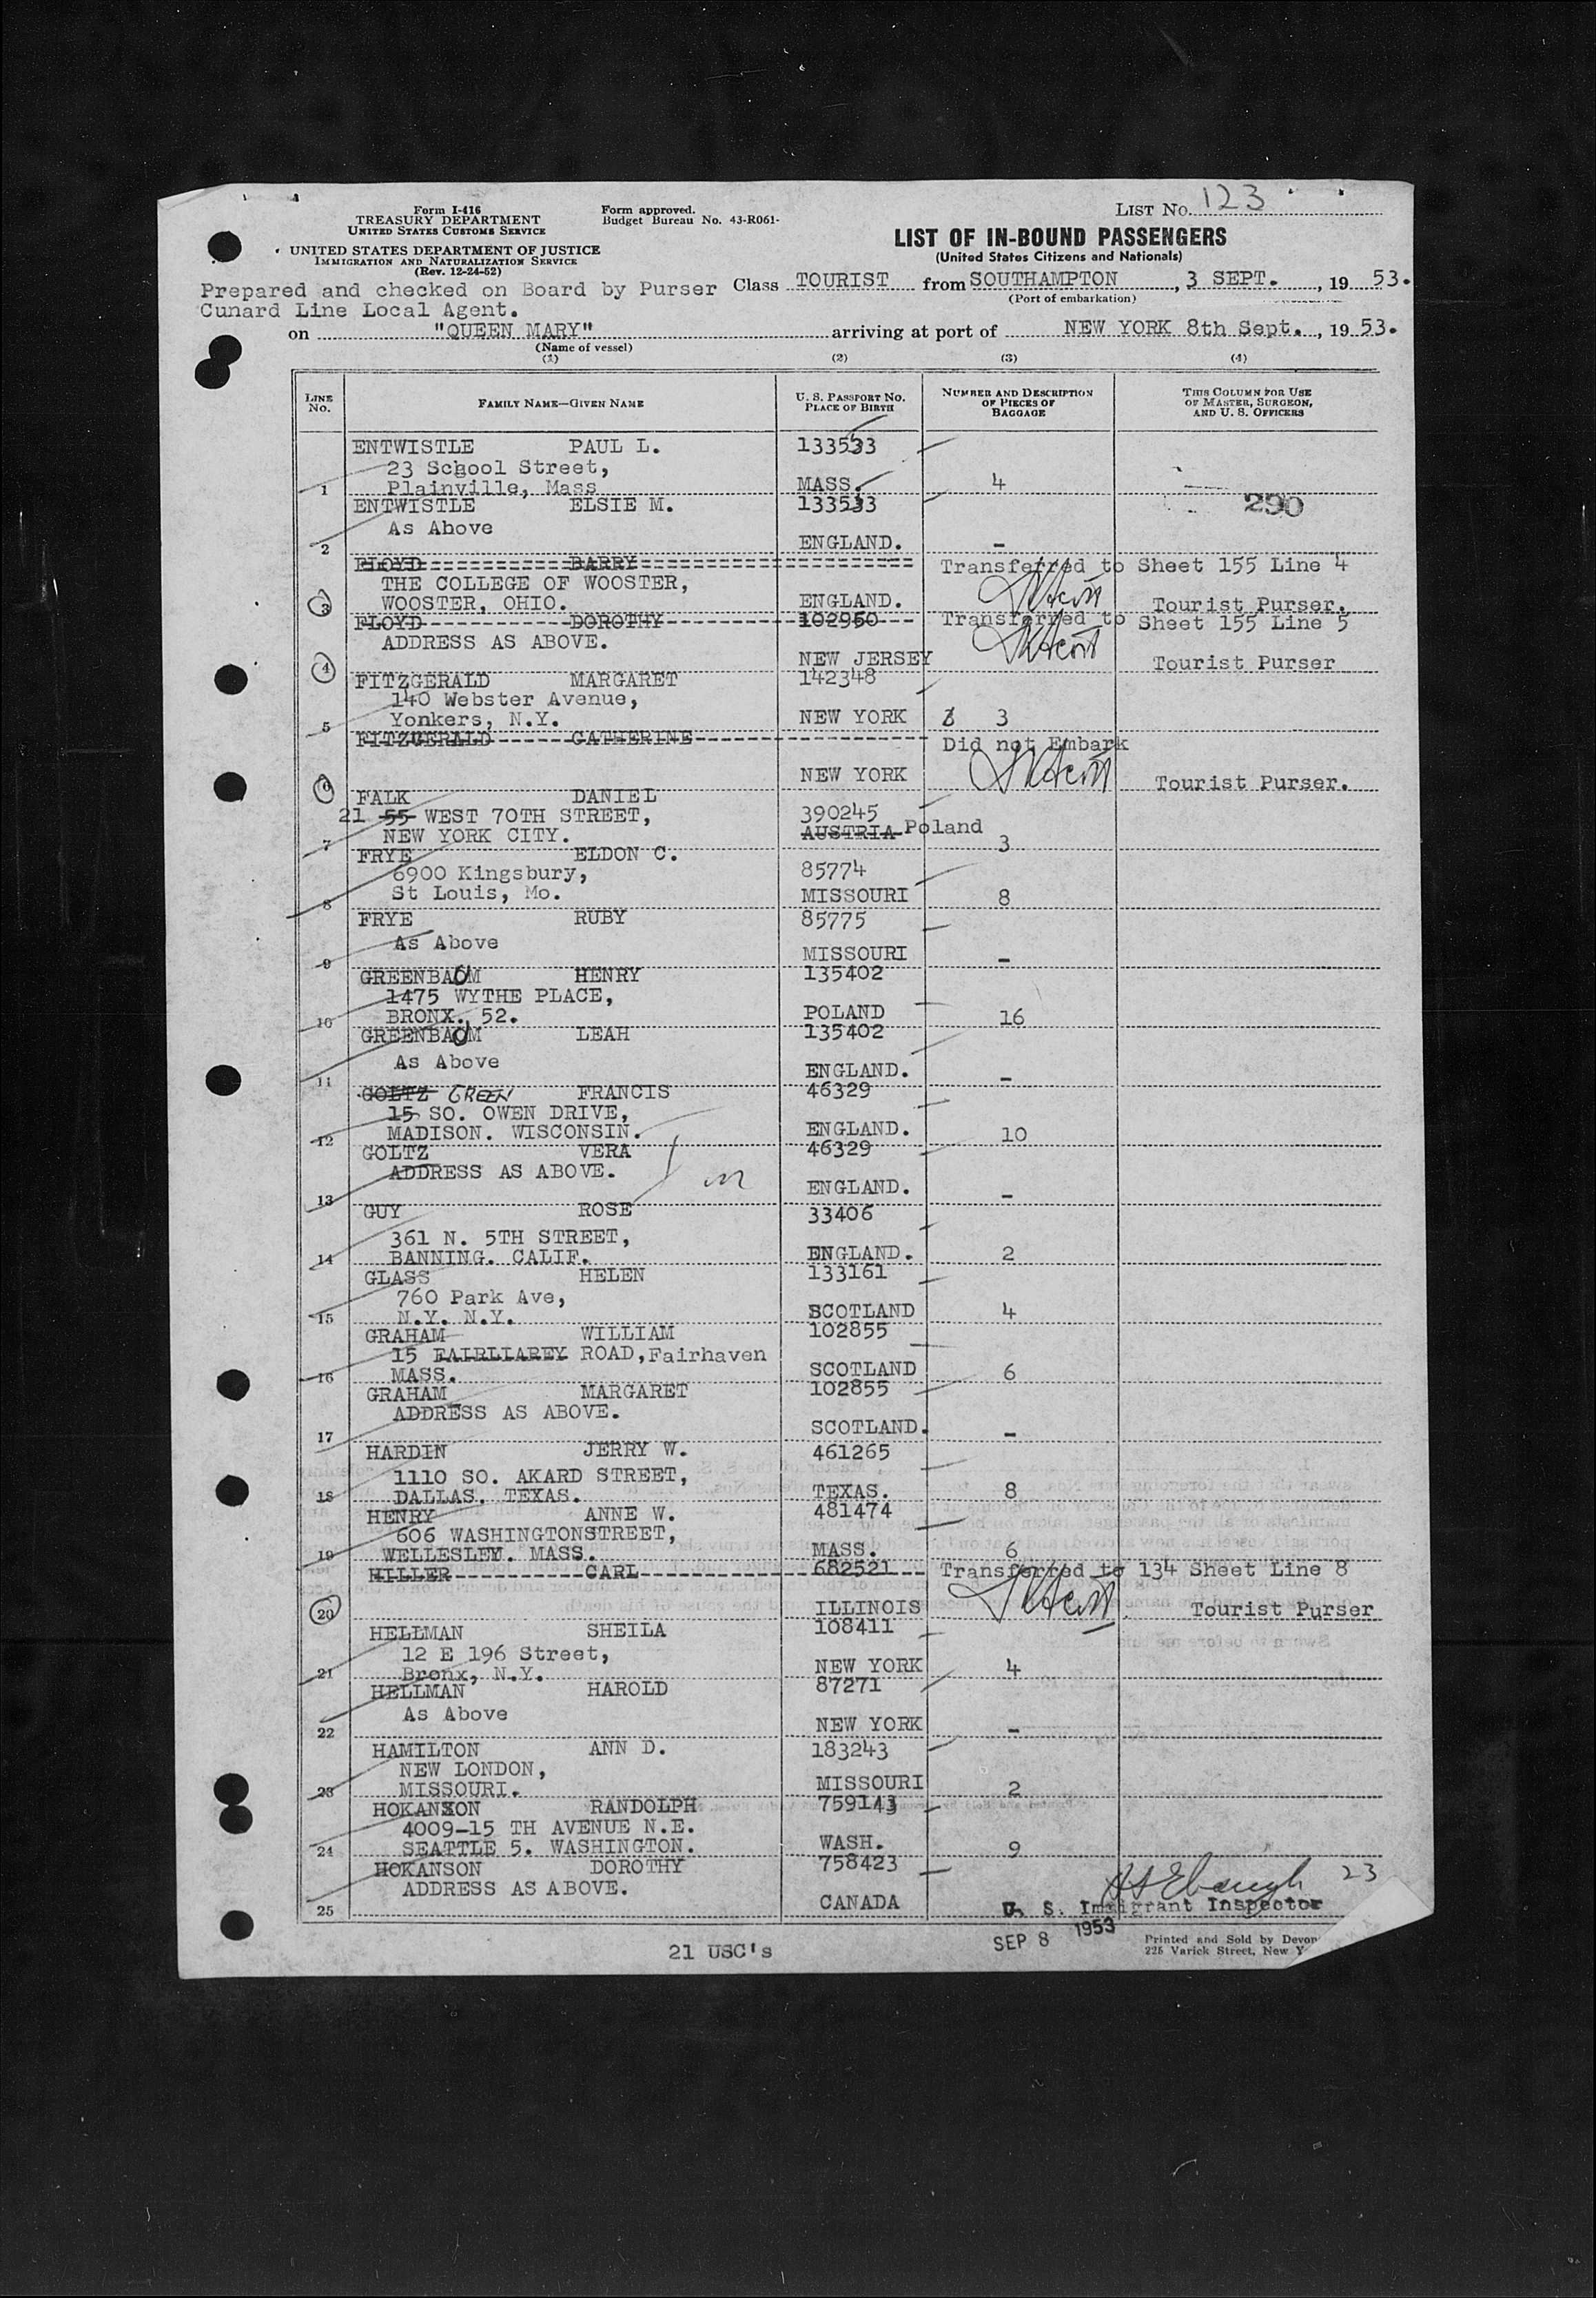 Form I-416
TREASURY DEPARTMENT
UNITED STATES CUSTOMS SERVICE
UNITED STATES DEPARTMENT OF JUSTICE
IMMIGRATION AND NATURALIZATION SERVICE
(Rev. 12-24-52)
Form approved.
Budget Bureau No. 43-R061-
LIST NO. 123
LIST OF IN-BOUND PASSENGERS
(United States Citizens and Nationals)
Prepared and checked on Board by Purser
Cunard Line Local Agent.
Class TOURIST from SOUTHAMPTON, 3 SEPT., 1953.
(Port of embarkation)
on "QUEEN MARY" arriving at port of NEW YORK 8th Sept., 1953.
(Name of vessel)
(1) (2) (3) (4)
LINE NO. FAMILY NAME—GIVEN NAME U. S. PASSPORT NO. PLACE OF BIRTH NUMBER AND DESCRIPTION OF PIECES OF BAGGAGE THIS COLUMN FOR USE OF MASTER, SURGEON, AND U. S. OFFICERS
ENTWISTLE PAUL L. 133533
23 School Street,
1 Plainville, Mass MASS. 4
ENTWISTLE ELSIE M. 133533 290
As Above
2 ENGLAND. -
FLOYD BARRY Transferred to Sheet 155 Line 4
THE COLLEGE OF WOOSTER,
3 WOOSTER, OHIO. ENGLAND. Tourist Purser.
FLOYD DOROTHY 102950 Transferred to Sheet 155 Line 5
ADDRESS AS ABOVE.
4 NEW JERSEY Tourist Purser
FITZGERALD MARGARET 142348
140 Webster Avenue,
5 Yonkers, N.Y. NEW YORK 3
FITZGERALD GATHERINE Did not Embark
6 NEW YORK Tourist Purser.
FALK DANIEL 390245
21 55 WEST 70TH STREET,
7 NEW YORK CITY. AUSTRIA Poland 3
FRYE ELDON C. 85774
6900 Kingsbury,
8 St Louis, Mo. MISSOURI 8
FRYE RUBY 85775
As Above
9 MISSOURI -
GREENBAUM HENRY 135402
1475 WYTHE PLACE,
10 BRONX. 52. POLAND 16
GREENBAUM LEAH 135402
As Above
11 ENGLAND. -
GOLTZ GREEN FRANCIS 46329
15 SO. OWEN DRIVE,
12 MADISON. WISCONSIN. ENGLAND. 10
GOLTZ VERA 46329
ADDRESS AS ABOVE.
13 ENGLAND. -
GUY ROSE 33406
361 N. 5TH STREET,
14 BANNING. CALIF. ENGLAND. 2
GLASS HELEN 133161
760 Park Ave,
15 N.Y. N.Y. SCOTLAND 4
GRAHAM WILLIAM 102855
15 FAIRLIAREY ROAD, Fairhaven
16 MASS. SCOTLAND 6
GRAHAM MARGARET 102855
ADDRESS AS ABOVE.
17 SCOTLAND. -
HARDIN JERRY W. 461265
1110 SO. AKARD STREET,
18 DALLAS. TEXAS. TEXAS. 8
HENRY ANNE W. 481474
606 WASHINGTONSTREET,
19 WELLESLEY. MASS. MASS. 6
HILLER CARL 682521 Transferred to 134 Sheet Line 8
20 ILLINOIS Tourist Purser
HELLMAN SHEILA 108411
12 E 196 Street,
21 Bronx, N.Y. NEW YORK 4
HELLMAN HAROLD 87271
As Above
22 NEW YORK -
HAMILTON ANN D. 183243
NEW LONDON,
23 MISSOURI. MISSOURI 2
HOKANSON RANDOLPH 759143
4009-15 TH AVENUE N.E.
24 SEATTLE 5. WASHINGTON. WASH. 9
HOKANSON DOROTHY 758423
ADDRESS AS ABOVE. 23
25 CANADA U. S. Immigrant Inspector
SEP 8 1953
21 USC's
Printed and Sold by Devon
225 Varick Street, New Y